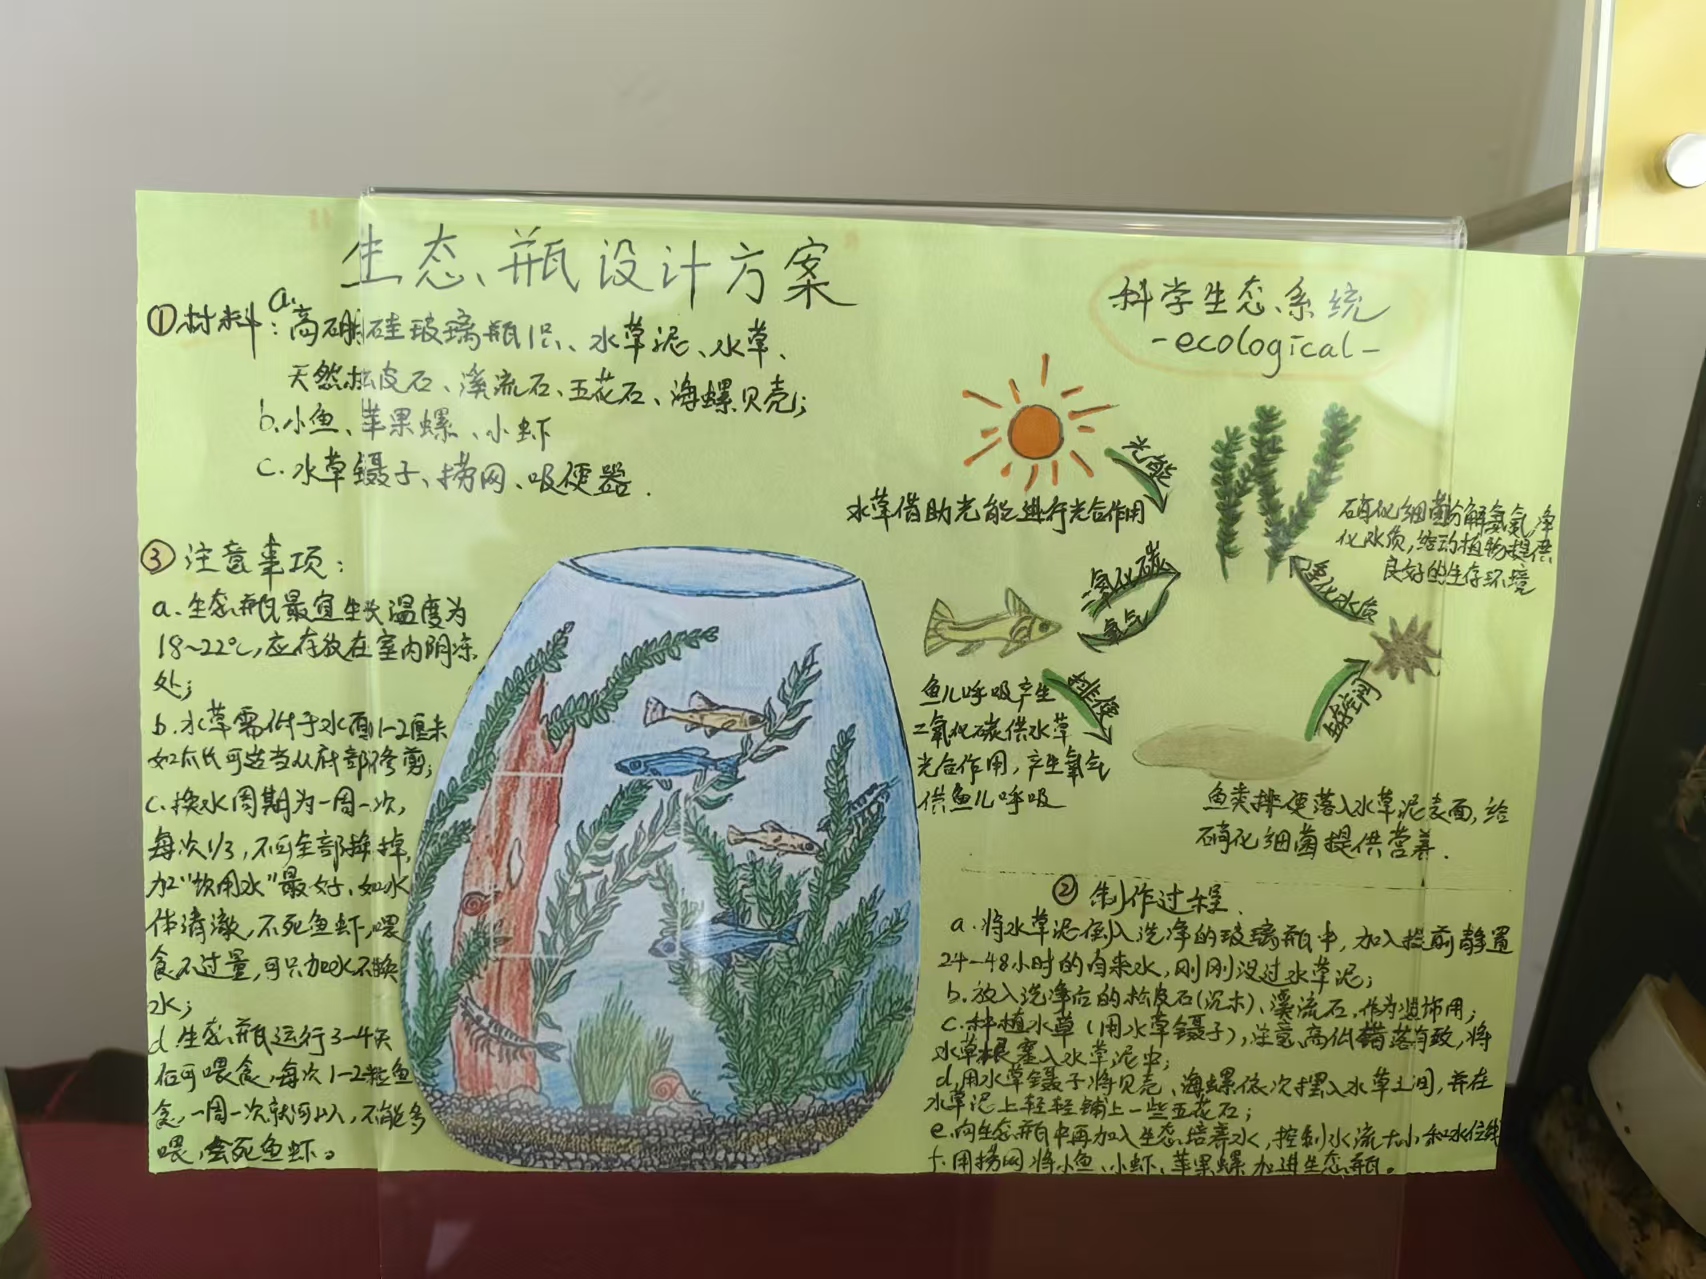 生态瓶设计方案
①材料:a.高硼硅玻璃瓶1只、水草泥、水草、
天然松皮石、溪流石、五花石、海螺贝壳;
b.小鱼、苹果螺、小虾
c.水草镊子、捞网、吸便器.
③注意事项:
a.生态瓶最宜生长温度为
18~22℃,应存放在室内阴凉
处;
b.水草需低于水面1-2厘米
如太长可适当从底部修剪;
c.换水周期为一周一次,
每次1/3,不可全部换掉,
加"饮用水"最好.如水
体清澈,不死鱼虾,喂
食不过量,可只加水不换
水;
d.生态瓶运行3-4天
后可喂食,每次1-2粒鱼
食,一周一次就可以,不能多
喂,会死鱼虾。
科学生态系统
-ecological-
光能
水草借助光能进行光合作用
硝化细菌分解氨氮,净
化水质,给动植物提供
良好的生存环境
氧化碳
氧气
净化水质
排便
鱼儿呼吸产生
二氧化碳供水草
光合作用,产生氧气
供鱼儿呼吸
鱼类排便落入水草泥表面,给
硝化细菌提供营养.
②制作过程.
a.将水草泥倒入洗净的玻璃瓶中,加入提前静置
24-48小时的自来水,刚刚没过水草泥;
b.放入洗净后的松皮石(沉木)、溪流石,作为装饰用;
c.种植水草(用水草镊子),注意高低错落有致,将
水草根塞入水草泥中;
d.用水草镊子将贝壳、海螺依次摆入水草之间,并在
水草泥上轻轻铺上一些五花石;
e.向生态瓶中再加入生态培养水,控制水流大小和水位线
f.用捞网将小鱼、小虾、苹果螺加进生态瓶。